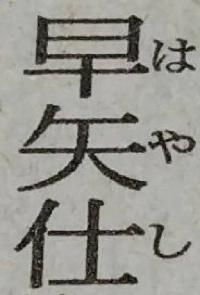 早矢仕
はやし